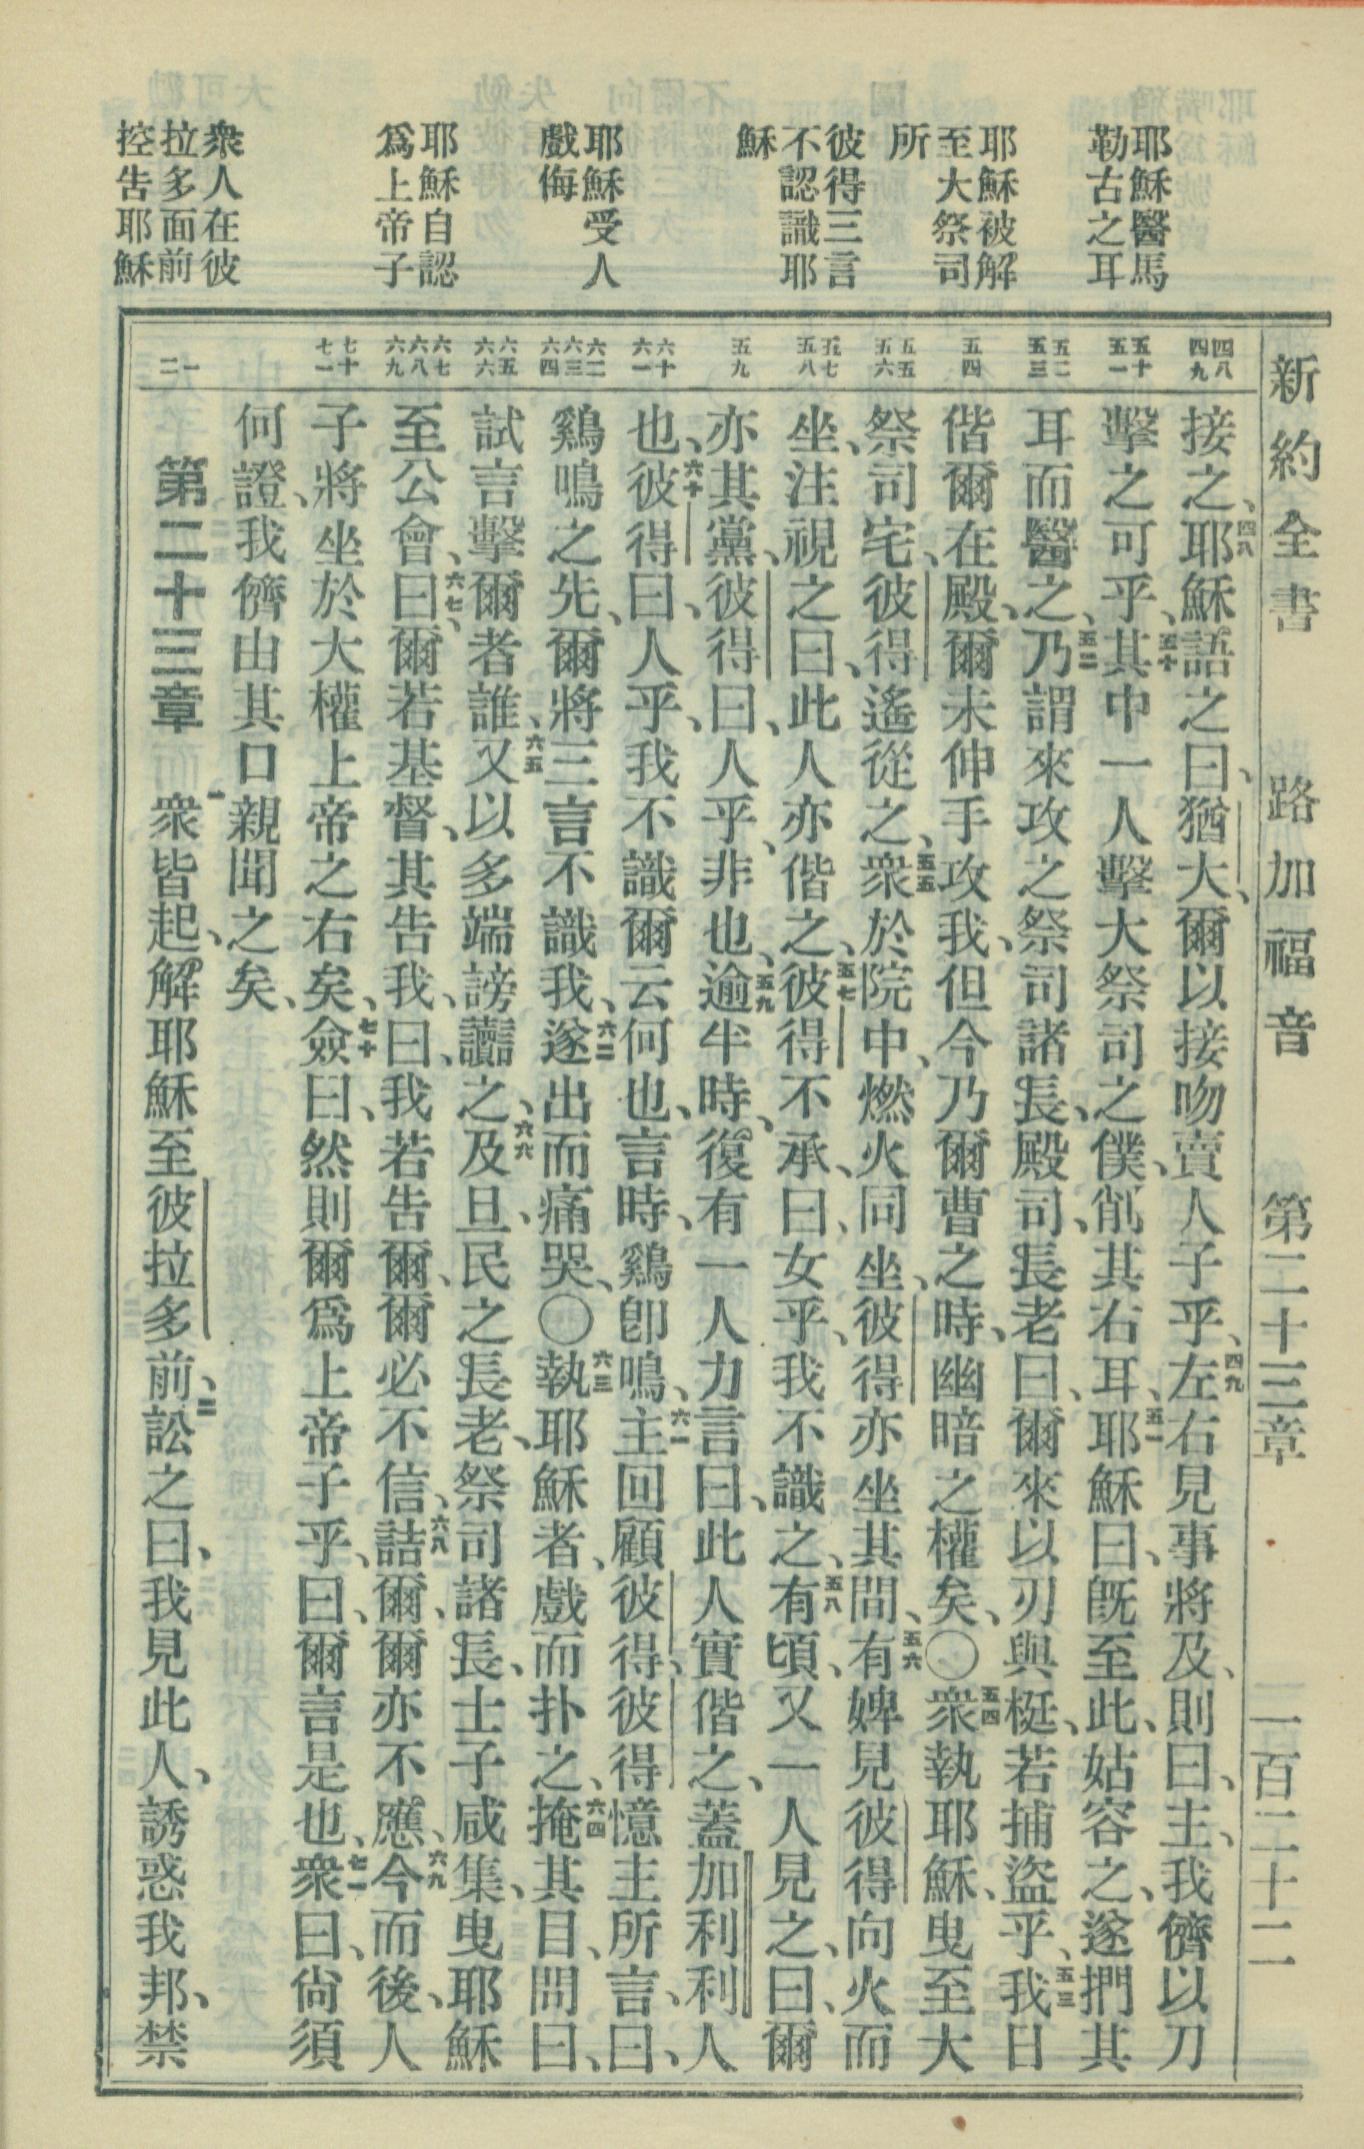 新約全書　路加福音　第二十三章　一百二十二
耶穌醫馬
勒古之耳
耶穌被解
至大祭司
所
彼得三言
不認識耶
穌
耶穌受人
戲侮
耶穌自認
爲上帝子
衆人在彼
拉多面前
控告耶穌
四八
四九
五十
五一
五二
五三
五四
五五
五六
五七
五八
五九
六十
六一
六二
六三
六四
六五
六六
六七
六八
六九
七十
七一
一
二
接之、四八耶穌語之曰、猶大、爾以接吻賣人子乎、四九左右見事將及、則曰、主、我儕以刀
擊之可乎、五十其中一人擊大祭司之僕、削其右耳、五一耶穌曰、旣至此、姑容之、遂捫其
耳而醫之、五二乃謂來攻之祭司諸長、殿司、長老曰、爾來以刃與梃、若捕盜乎、五三我日
偕爾在殿、爾未伸手攻我、但今乃爾曹之時、幽暗之權矣、〇五四衆執耶穌、曳至大
祭司宅、彼得遙從之、五五衆於院中、燃火同坐、彼得亦坐其間、五六有婢見彼得向火而
坐、注視之曰、此人亦偕之、五七彼得不承、曰、女乎、我不識之、五八有頃、又一人見之、曰、爾
亦其黨、彼得曰、人乎、非也、五九逾半時、復有一人力言曰、此人實偕之、蓋加利利人
也、六十彼得曰、人乎、我不識爾云何也、言時、鷄卽鳴、六一主回顧彼得、彼得憶主所言、曰、
鷄鳴之先、爾將三言不識我、六二遂出而痛哭、〇六三執耶穌者、戲而扑之、六四掩其目、問曰、
試言擊爾者誰、六五又以多端謗讟之、六六及旦、民之長老、祭司諸長、士子咸集、曳耶穌
至公會、六七曰、爾若基督、其告我、曰、我若告爾、爾必不信、六八詰爾、爾亦不應、六九今而後、人
子將坐於大權上帝之右矣、七十僉曰、然則爾爲上帝子乎、曰、爾言是也、七一衆曰、尙須
何證、我儕由其口親聞之矣、
第二十三章　一衆皆起、解耶穌至彼拉多前、二訟之曰、我見此人、誘惑我邦、禁